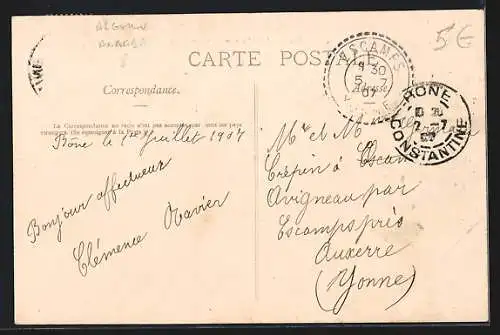 ALGERIE
CARTE POSTALE
5€
ESCAMPS
9 30
5 -7
07
YONNE
Correspondance.
Adresse
BÔNE
2 -7
CONSTANTINE
La Correspondance au recto n'est pas acceptée par tous les pays
étrangers. (Se renseigner à la Poste).
Bône le 1er Juillet 1907
Bonjour affectueux
Clémence Navier
Mr et M
Crépin à Escamps
Avigneau par
Escamps près
Auxerre
(Yonne)